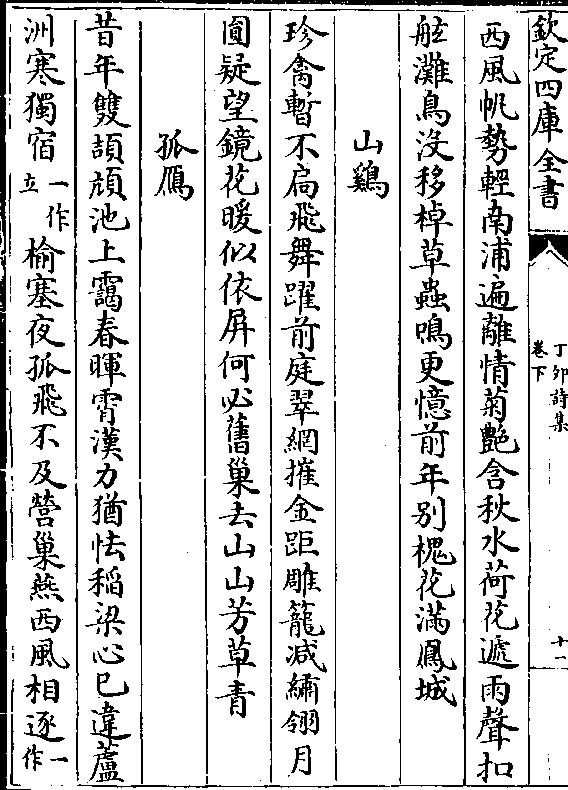 欽定四庫全書
丁卯詩集
卷下
十一
西風帆勢輕南浦遍離情菊艷含秋水荷花遞雨聲扣
舷灘鳥没移棹草蟲鳴更憶前年别槐花滿鳳城
山鷄
珍禽暫不扃飛舞躍前庭翠網摧金距雕籠减繡翎月
圓疑望鏡花暖似依屏何必舊巢去山山芳草青
孤鴈
昔年雙頡頏池上靄春暉霄漢力猶怯稻粱心已違蘆
洲寒獨宿一作立榆塞夜孤飛不及營巢燕西風相逐一作